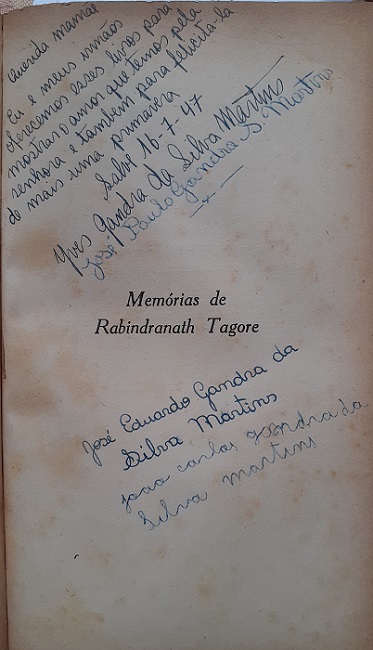 querida mamãe
Eu e meus irmãos
oferecemos esses livros para
mostrar o amor que temos pela
senhora e também para felicitá-la
do mais uma primavera
Salve 16-7-47
Yves Gandra da Silva Martins
José Paulo Gandra S. Martins
Memórias de
Rabindranath Tagore
José Eduardo Gandra da
Silva Martins
joao carlos gandra da
Silva martins